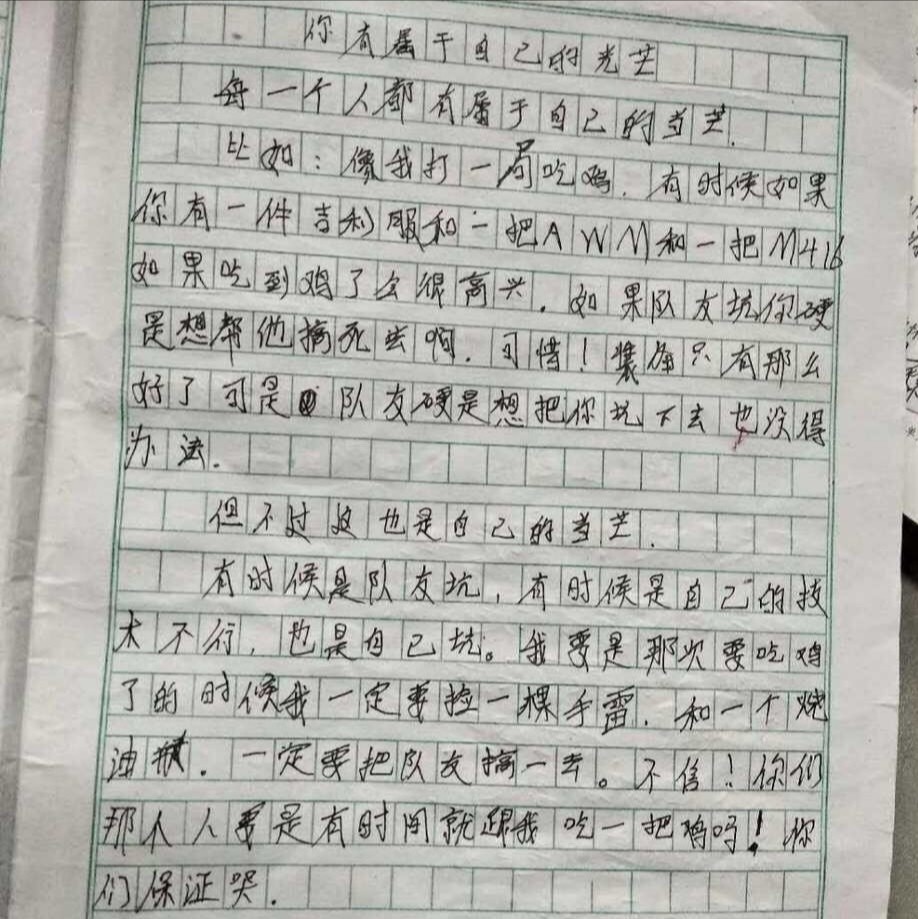 你有属于自己的光芒
每一个人都有属于自己的当芒.
比如:像我打一局吃鸡.有时候如果
你有一件吉利服和一把AWM和一把M416
如果吃到鸡了会很高兴.如果队友坑你硬
是想帮他搞死去啊.可惜!装备只有那么
好了可是队友硬是想把你坑下去也没得
办法.
但不过这也是自己的当芒.
有时候是队友坑,有时候是自己的技
术不行,也是自己坑。我要是那次要吃鸡
了的时候我一定要捡一棵手雷.和一个烧
油瓶.一定要把队友搞一去。不信!你们
那个人要是有时间就跟我吃一把鸡吗!你
们保证哭.